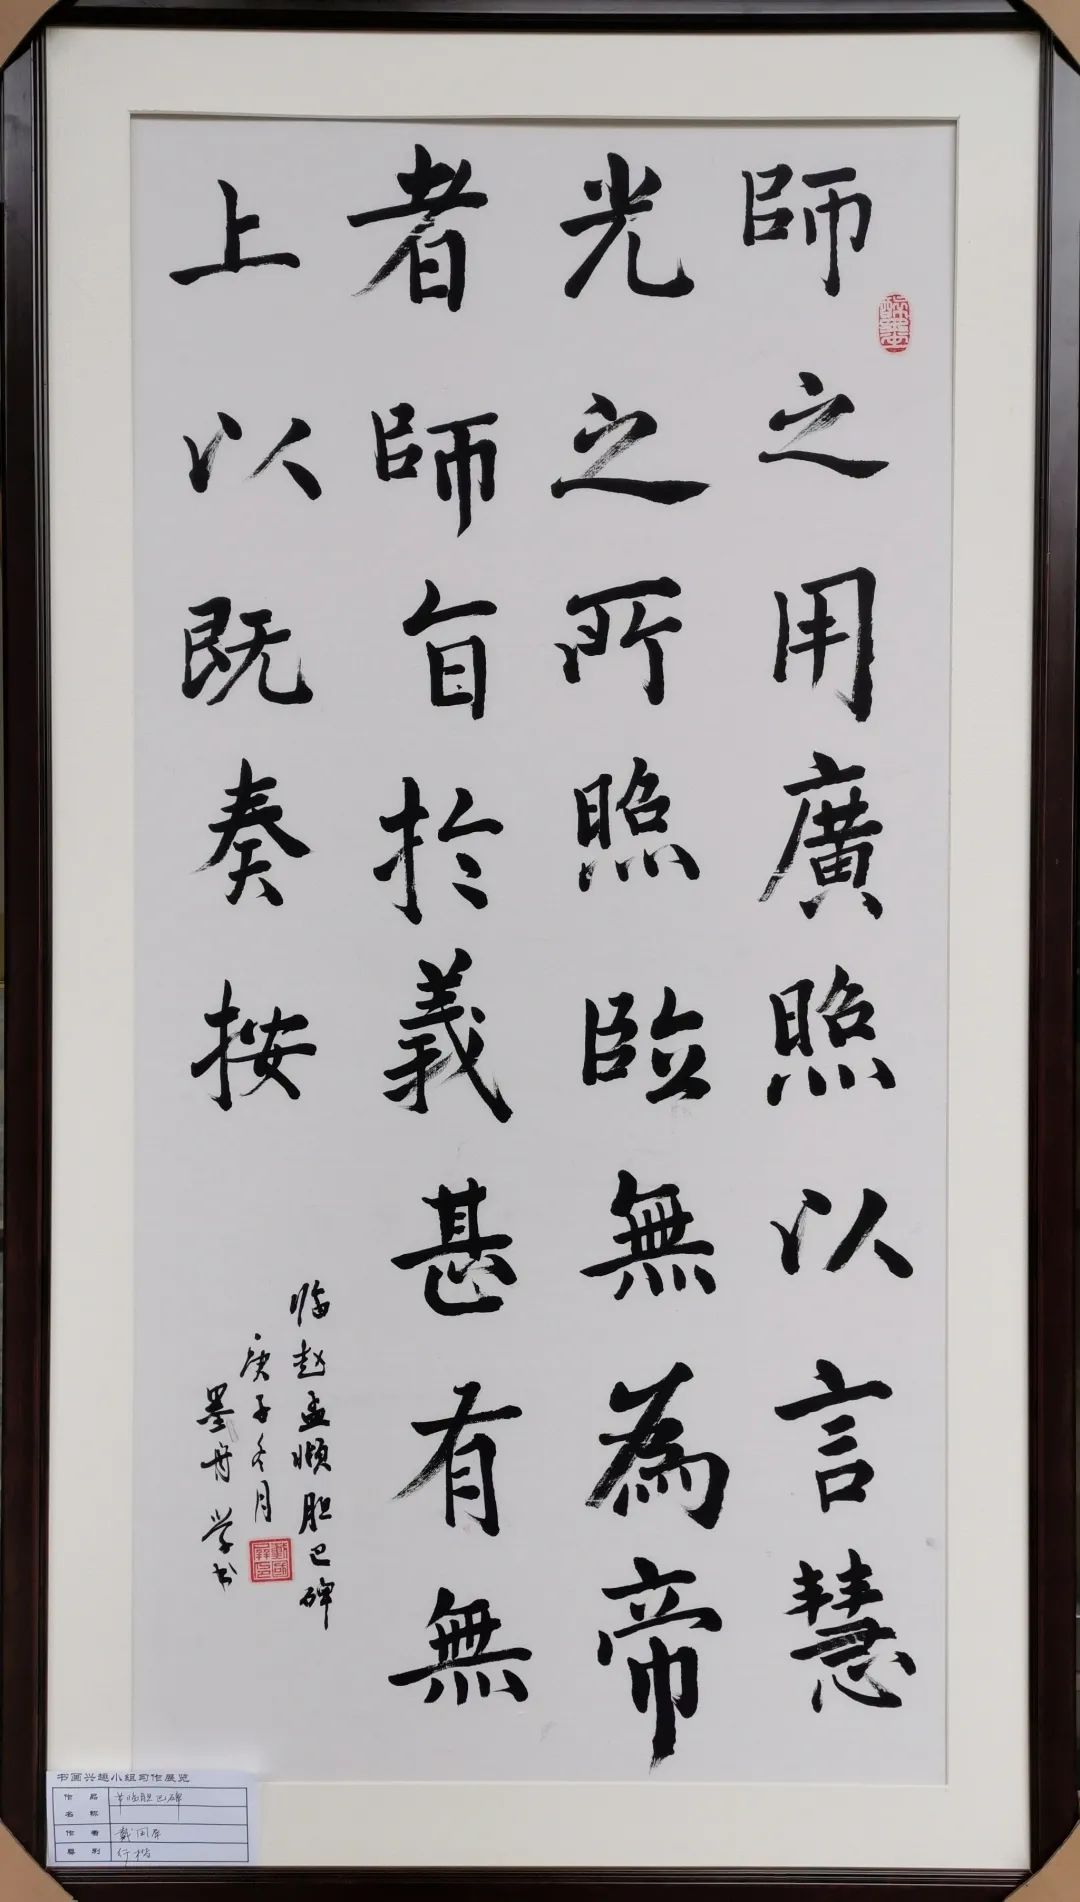 師之用廣照以言慧
光之所照臨無為帝
者師旨於義甚有無
上以既奏按
临赵孟頫胆巴碑
庚子冬月
墨舟学书
书画兴趣小组习作展览
作品名称 节临胆巴碑
作者
类别 行楷